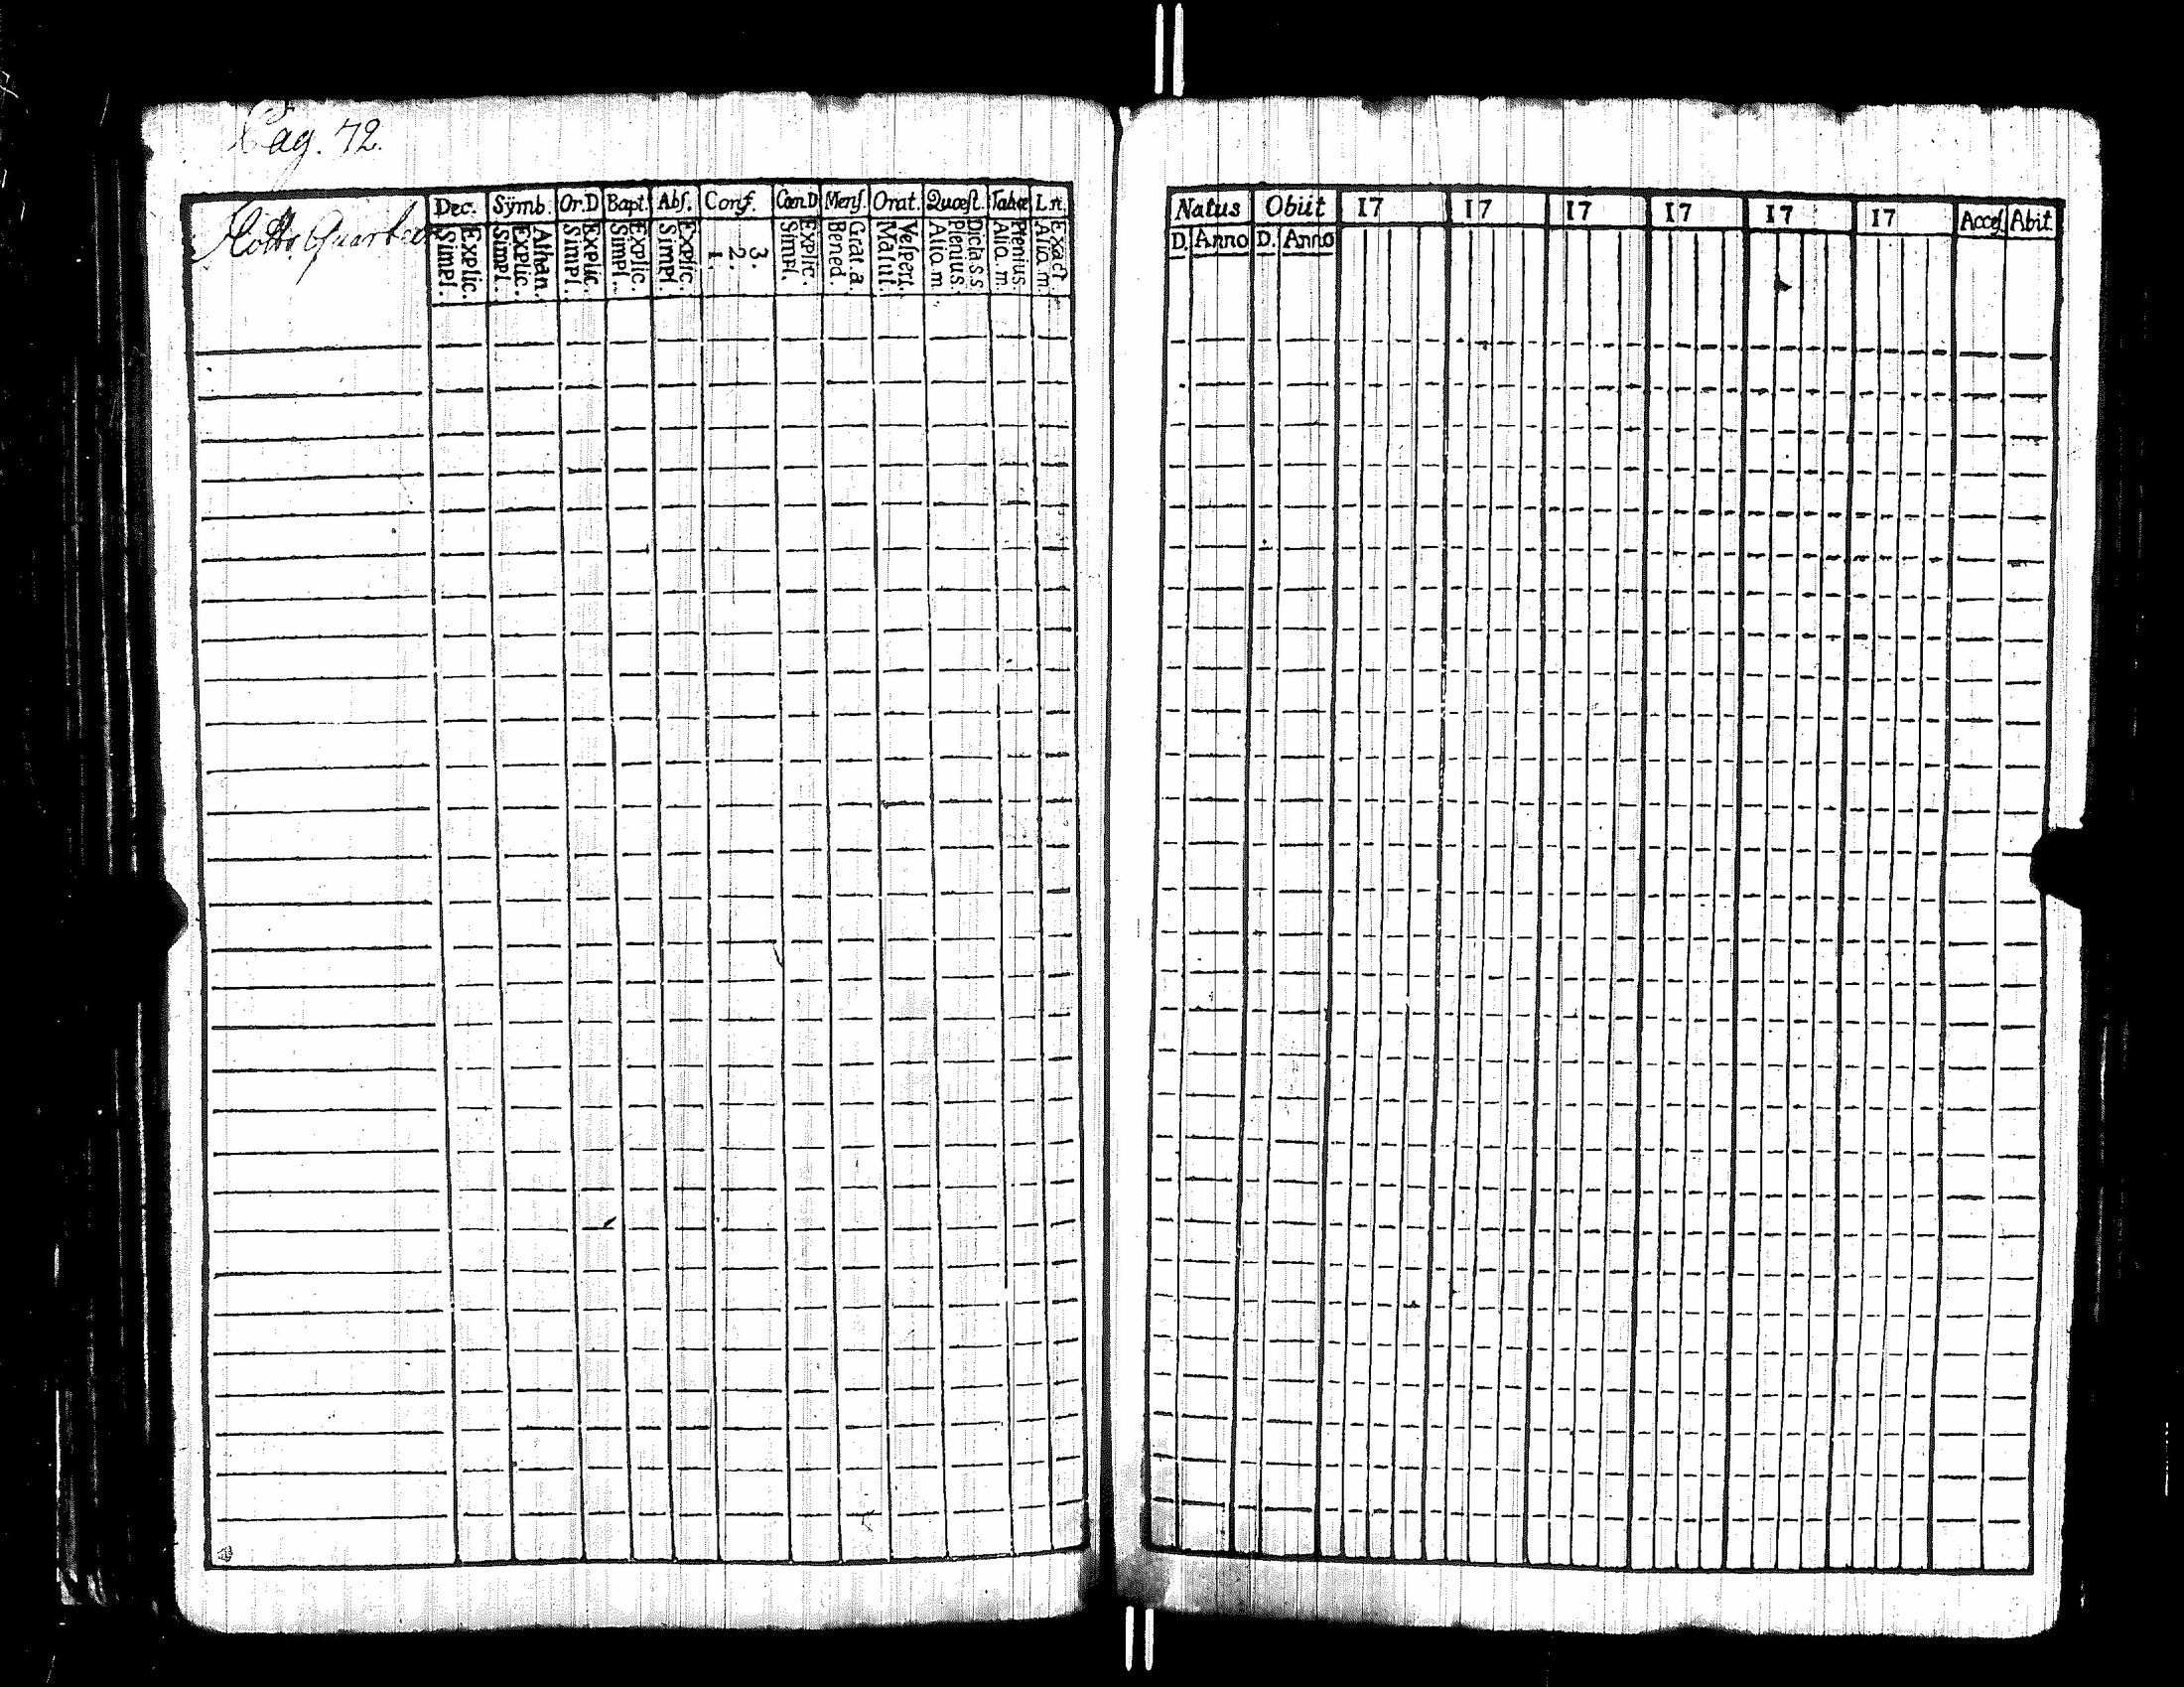 Pag. 72.
Quarter
Dec. Sÿmb. Or.D Bapt. Abſ. Conf. Cœn.D Menſ. Orat. Quœſt. Tabœ L.n.
Simpl. Explic. Simpl. Explic. Athan. Simpl. Explic. Simpl. Explic. Simpl. Explic. 1. 2. 3. Simpl. Explic. Bened. Grat.a. Matut. Veſpert. Alio.m. Plenius. Dicta.s.s. Alio.m. Plenius. Alio.m. Exact.
Natus Obiit 17 17 17 17 17 17 Acceſ Abit.
D. Anno D. Anno